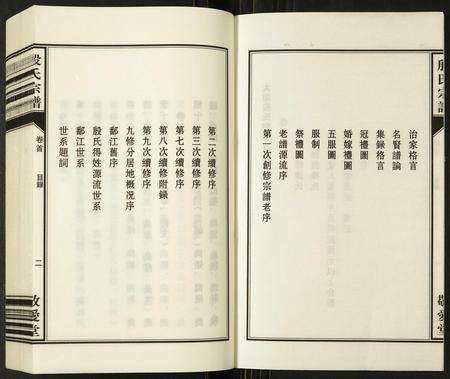 殷氏宗譜
敬愛堂
治家格言
名賢譜論
集錄格言
冠禮圖
婚嫁禮圖
五服圖
服制
祭禮圖
老譜源流序
第一次創修宗譜老序
第二次續修序
第三次續修序
第七次續修序
第八次續修附錄
第九次續修序
九修分居地概況序
鄱江舊序
殷氏得姓源流世系
鄱江世系
世系題詞
殷氏宗譜
卷首
目録
二
敬愛堂